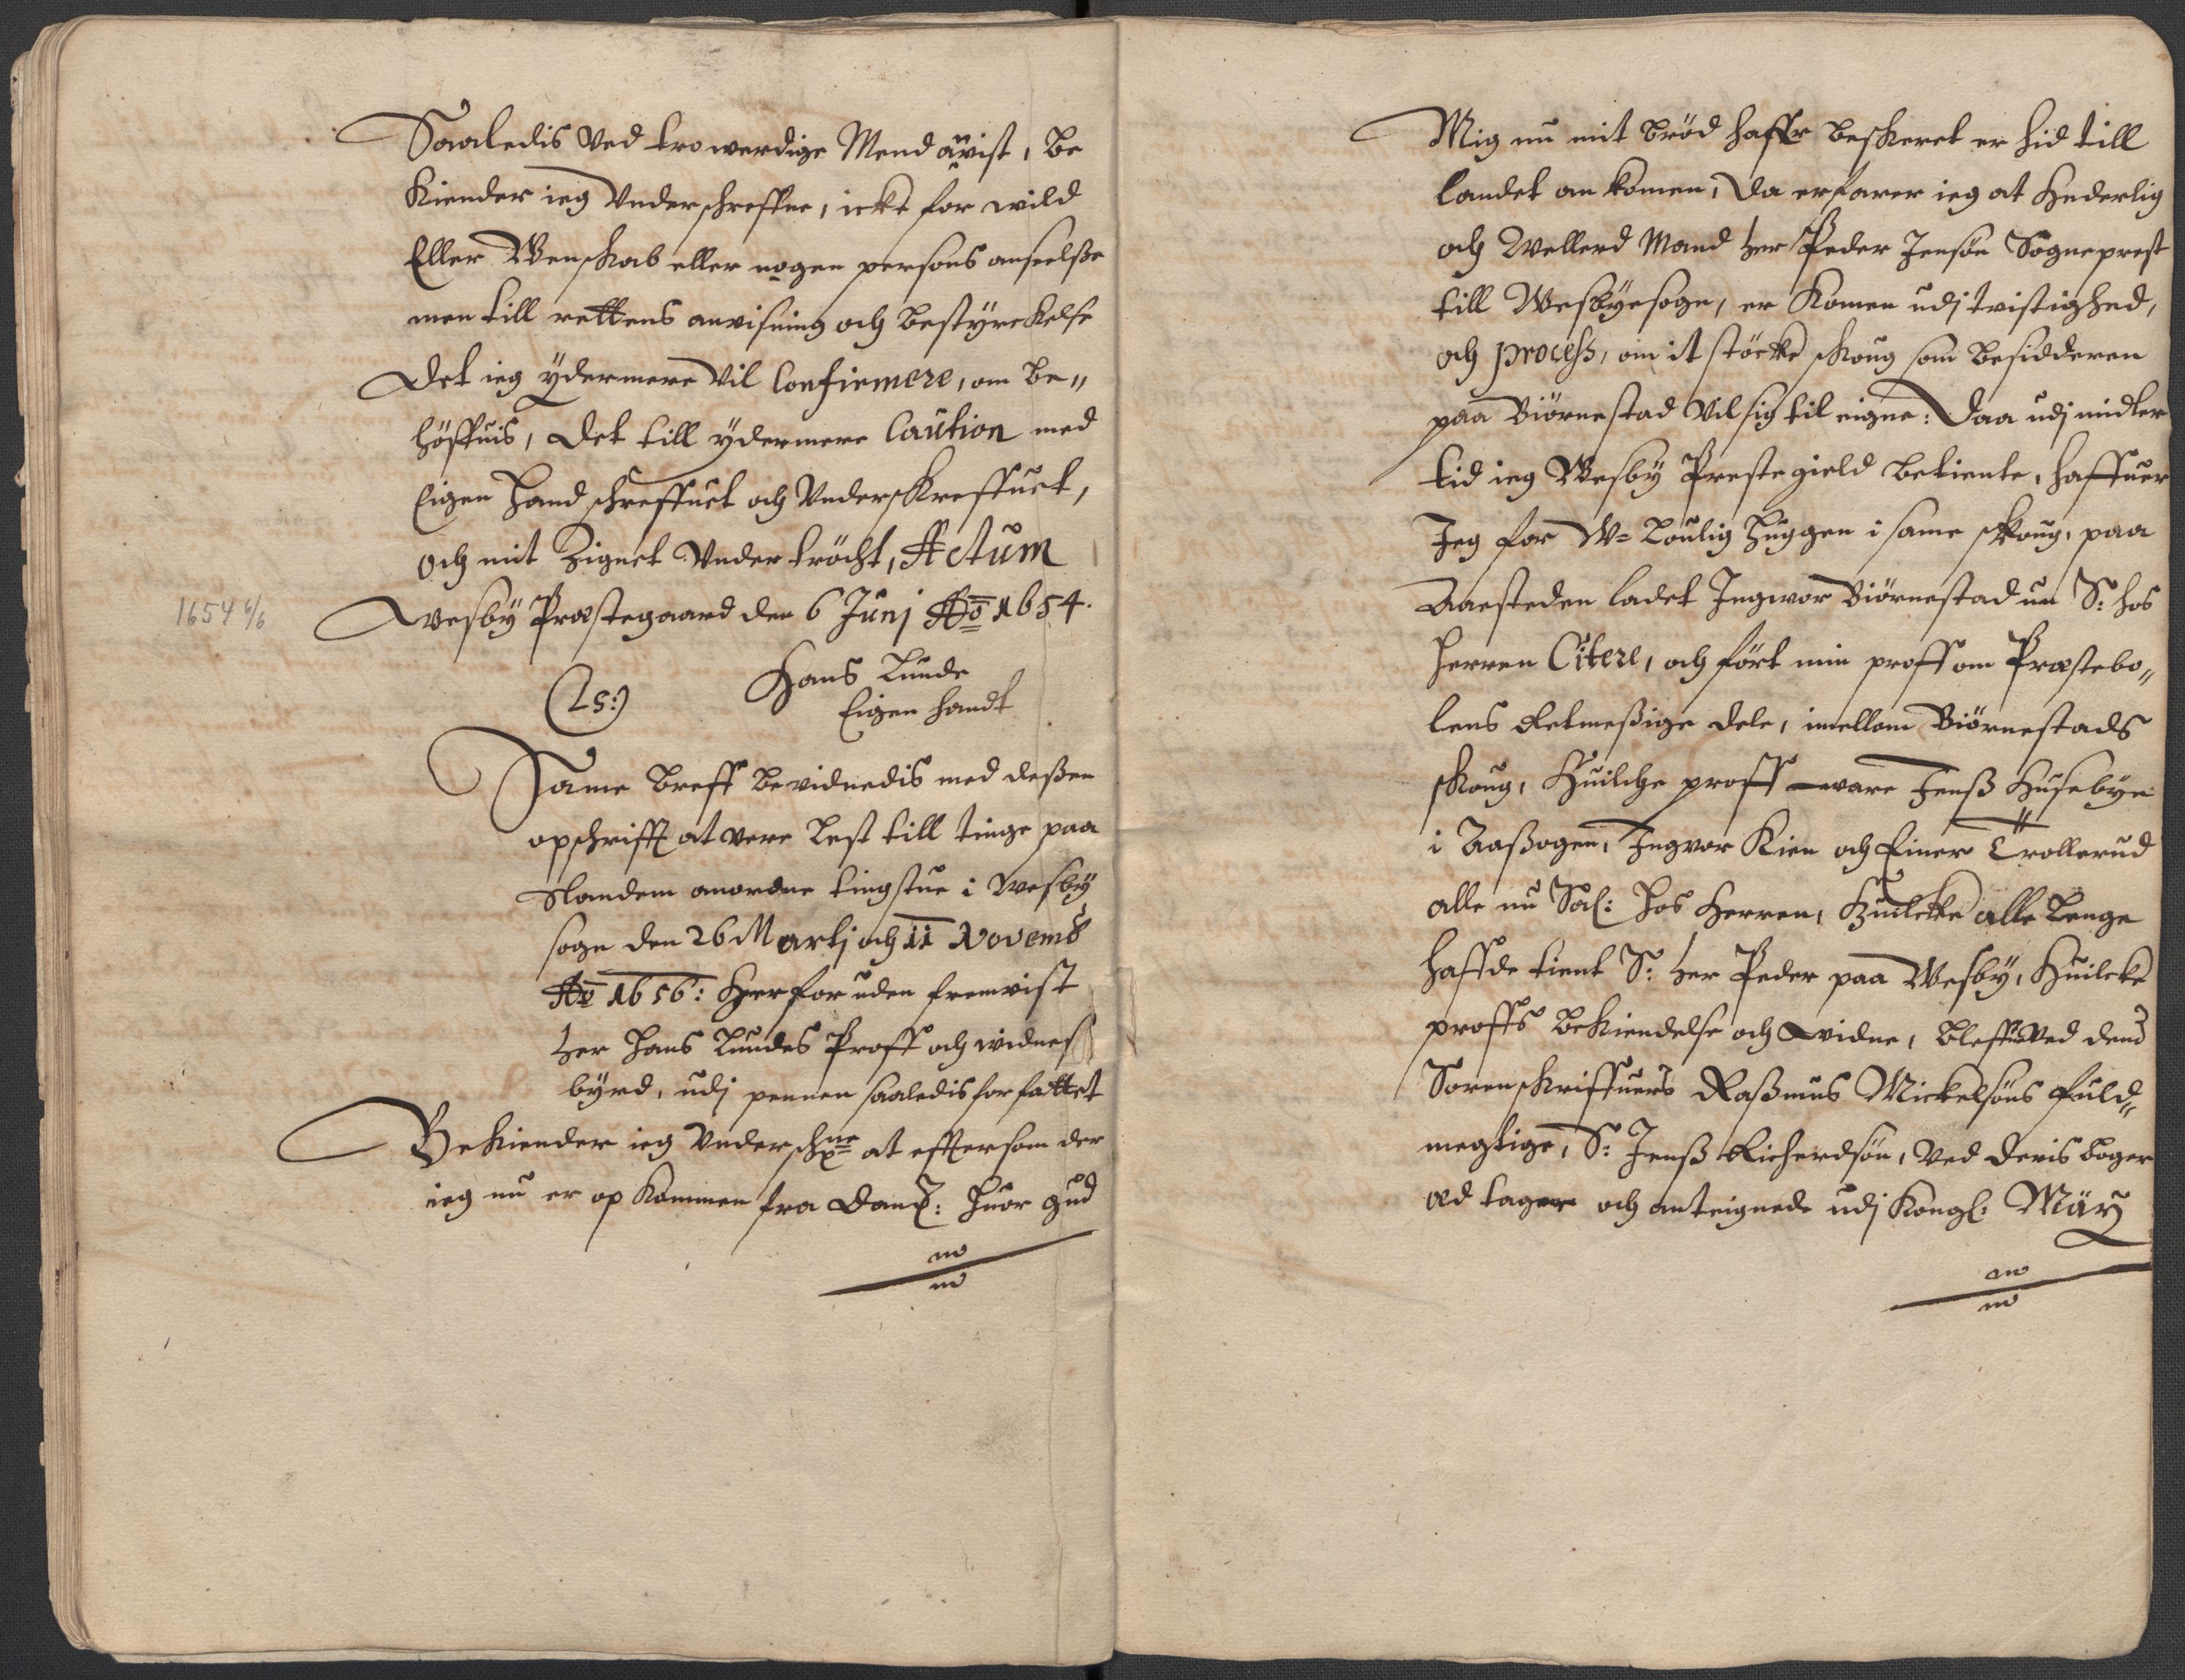 Saaledis Ved trowerdige Mend anvist, be
Kiender ieg Vnderschreffne, icke for wild
Eller Wenskab eller nogen persons anseelße
men till rettens anvisning och bestyrckelse
Det ieg ydermere Vil Confirmere, om be„
höffuis, Det till ydermere Caution med
Eigen Hand schreffuet och Vnderskreffuet,
och mit Zignet Vnder tröcht, Actum
Wesby Præstegaard den 6 Junj Ao 1654.
1654 6/6
Hans Lunde
(LS:)
Eigen handt
Same breff bevidnedis med deßen
opschrifft at vere lest till tinge paa
Slandem anordne tingstue i Wesby
sogn den 26 Martj och 11 Novemb
Ao 1656: Herforuden fremvist
her Hans Lundes Proff och widnes
byrd, udj pennen saaledis forfattet
Bekiender ieg Vndersch ne at effter som der
ieg nu er op kommen fra Danm: huor gud
Mig nu mit brød haffr beskeret er hid till
landet ankomen, Da erfarer ieg at Hederlig
och Wellerd Mand her Peder Jensøn Sogneprest
till Wesbyesogn, er komen udj tvistighed,
och process, om it støcke skoug som besidderen
paa Biørnestad Vil sig til eigne: Daa udj midler
tid ieg Wesby Prestegield betiente, haffuer
Jeg for W= Loulig Huggen i same skoug, paa
Aaesteden ladet Ingwor Biørnestad nu S: hos
Herren Citere, och fört min proff om Præstebo„
lens Retmeßige dele, imellom Biørnestads
skoug, Huilche proff ware Jenß Husebye
i Aaßogen, Ingvor Kien och Einer Trollerud
alle nu Sal: Hos Herren, Huilcke alle lenge
haffde tient S: her Peder paa Wesby, Huilcke
proffs bekiendelse och Widne, bleff Ved dend
Sorenskriffuers Raßmus Mickelsöns fuld„
megtige, S: Jenß Richerdsøn, Ved deris boger
ed tager och anteignede udj Kongl: Mäy